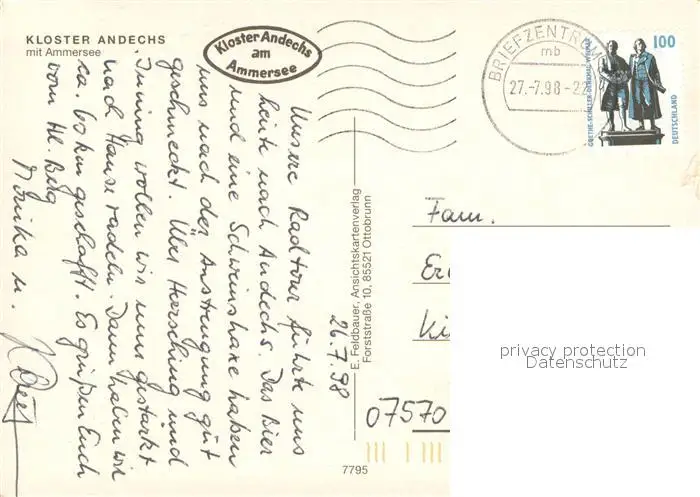 KLOSTER ANDECHS
mit Ammersee
Kloster Andechs
am
Ammersee
BRIEFZENTRUM
mb
27.-7.98-22
GOETHE-SCHILLER-DENKMAL WEIMAR
100
DEUTSCHLAND
26.7.98
Unsere Radtour führte uns
heute nach Andechs. Das Bier
und eine Schweinshaxe haben
uns nach der Anstrengung gut
geschmeckt. Über Hersching und
Inning wollen wir uns gestärkt
nach Hause radeln. Dann haben wir
ca. 60 km geschafft. Es grüßen Euch
vom Hl. Berg
Monika u.
E. Feldbauer, Ansichtskartenverlag
Forststraße 10, 85521 Ottobrunn
Fam.
07570
7795
privacy protection
Datenschutz